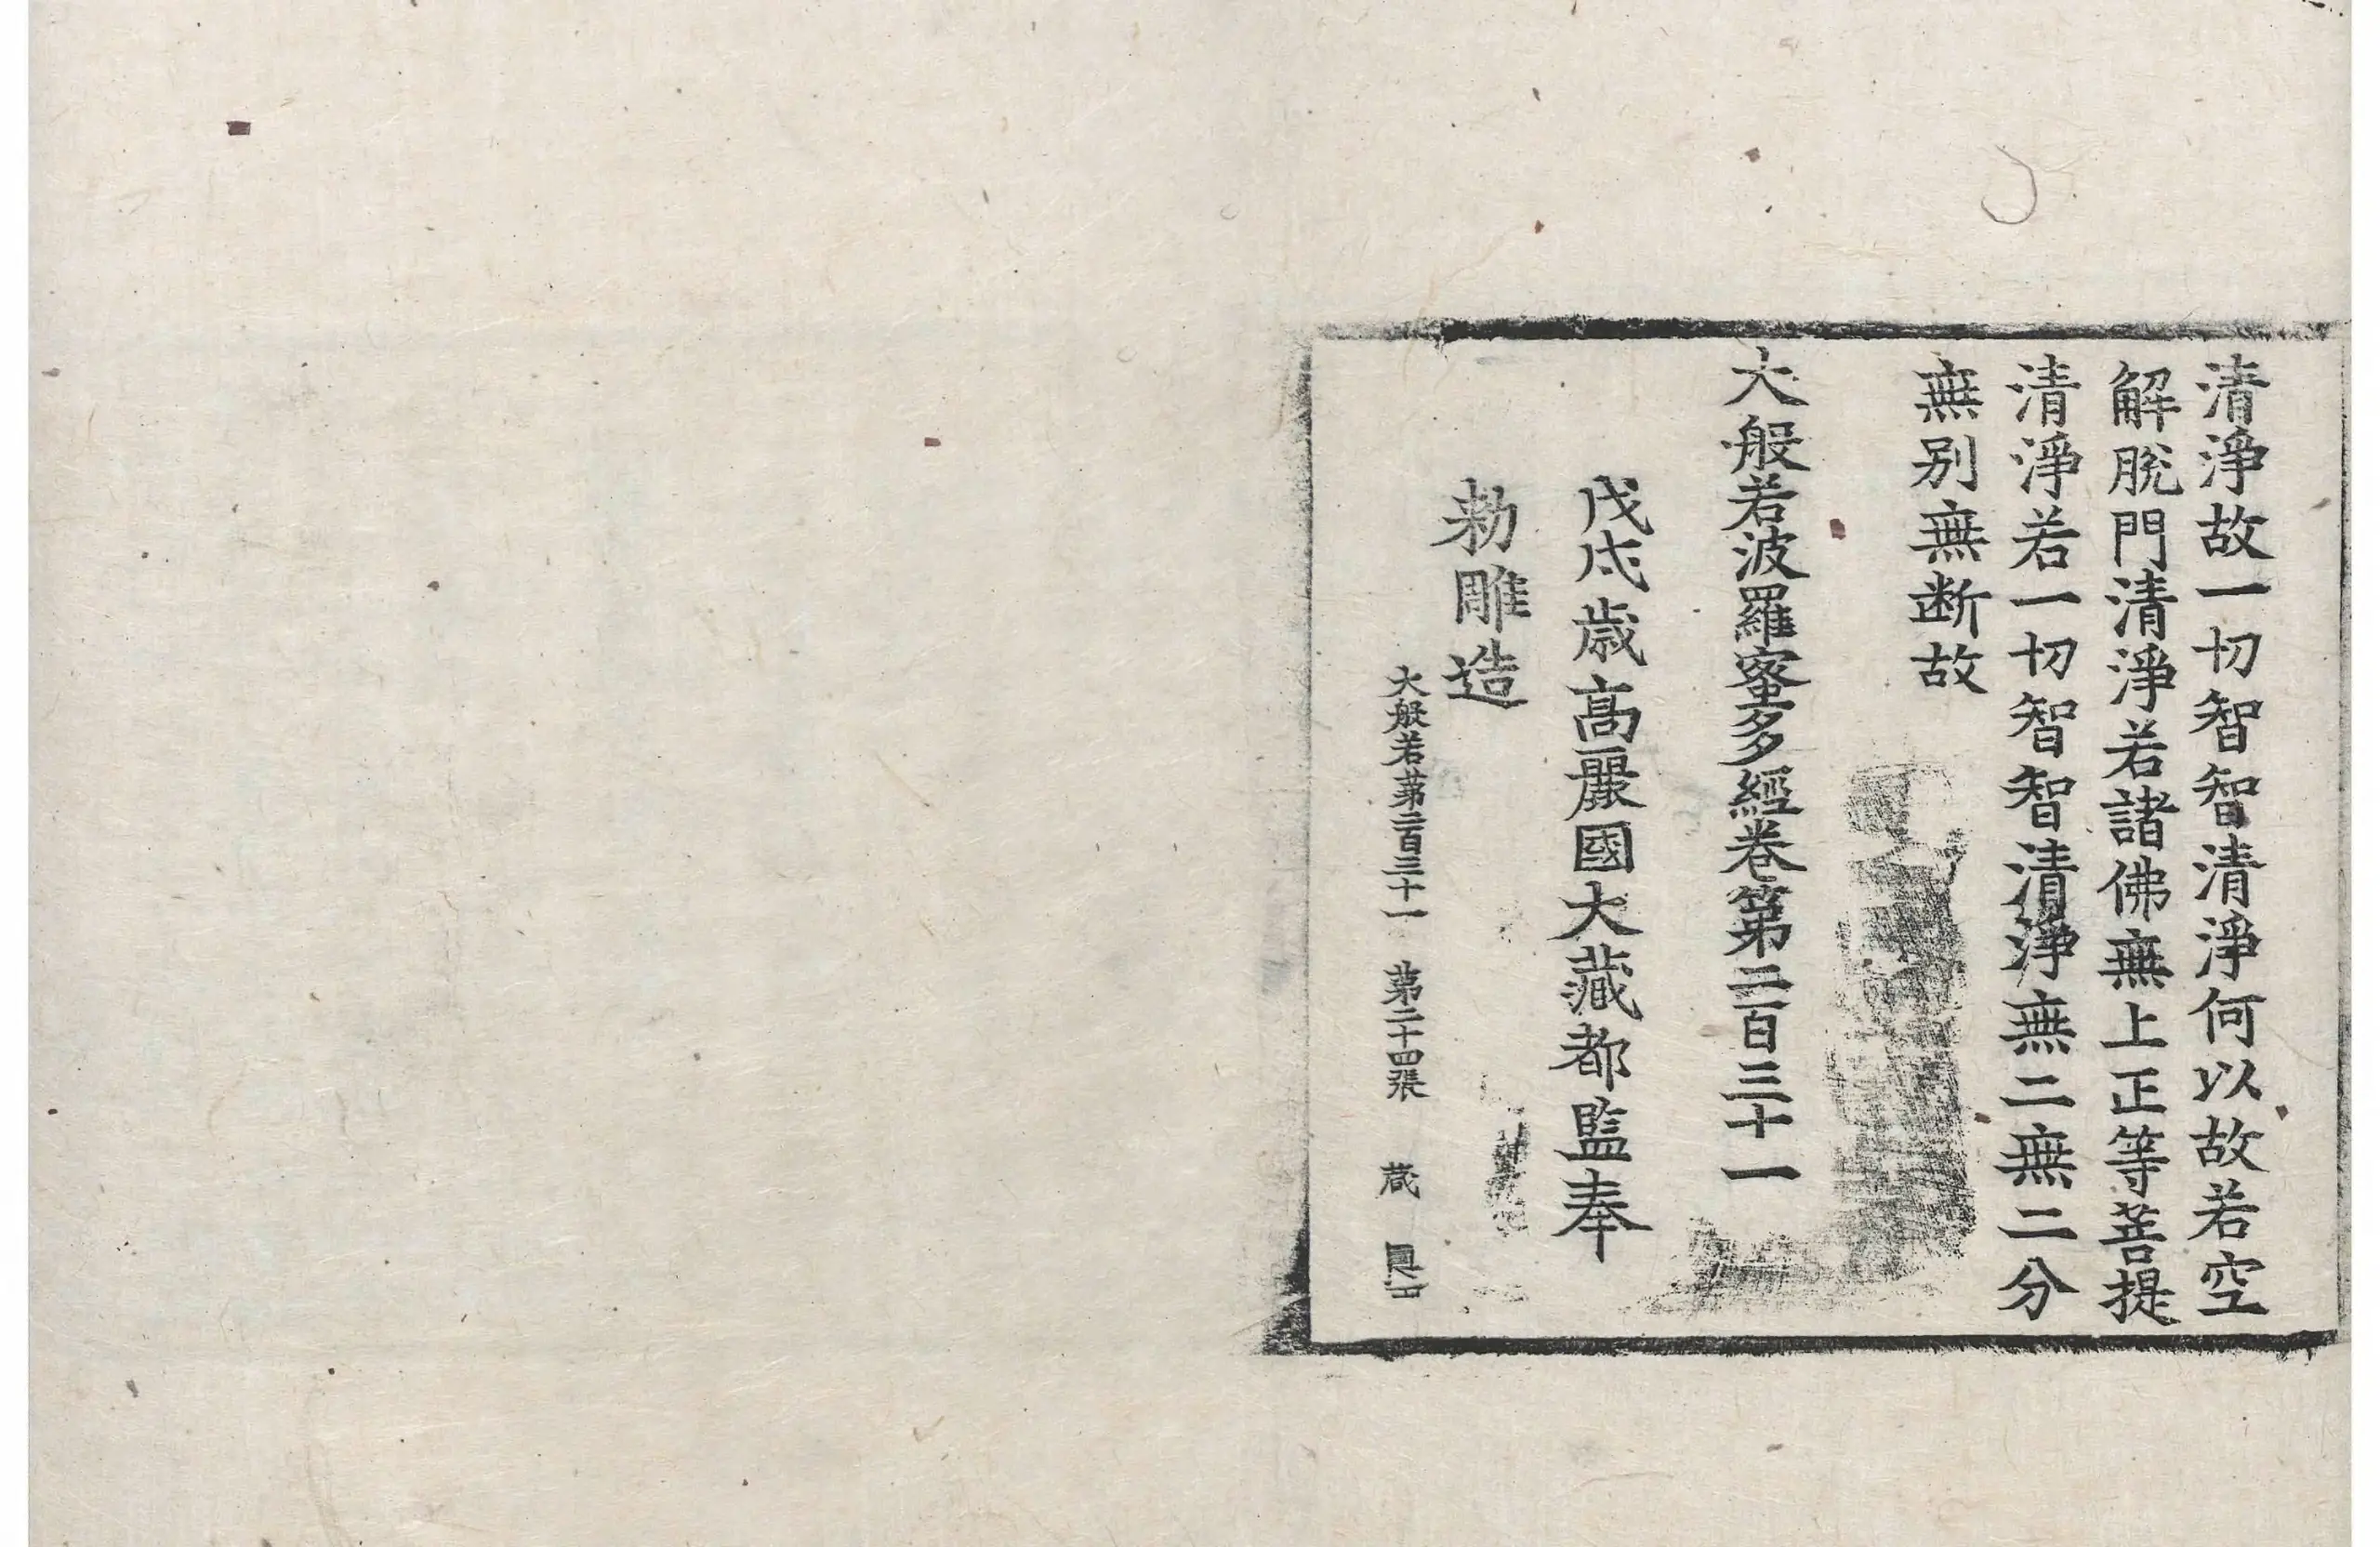 清淨故一切智智清淨何以故若空
解脫門清淨若諸佛無上正等菩提
清淨若一切智智清淨無二無二分
無別無断故
大般若波羅蜜多經卷第二百三十一
戊戌歲高麗國大藏都監奉
勑雕造
大般若苐二百三十一 苐二十四張 荿